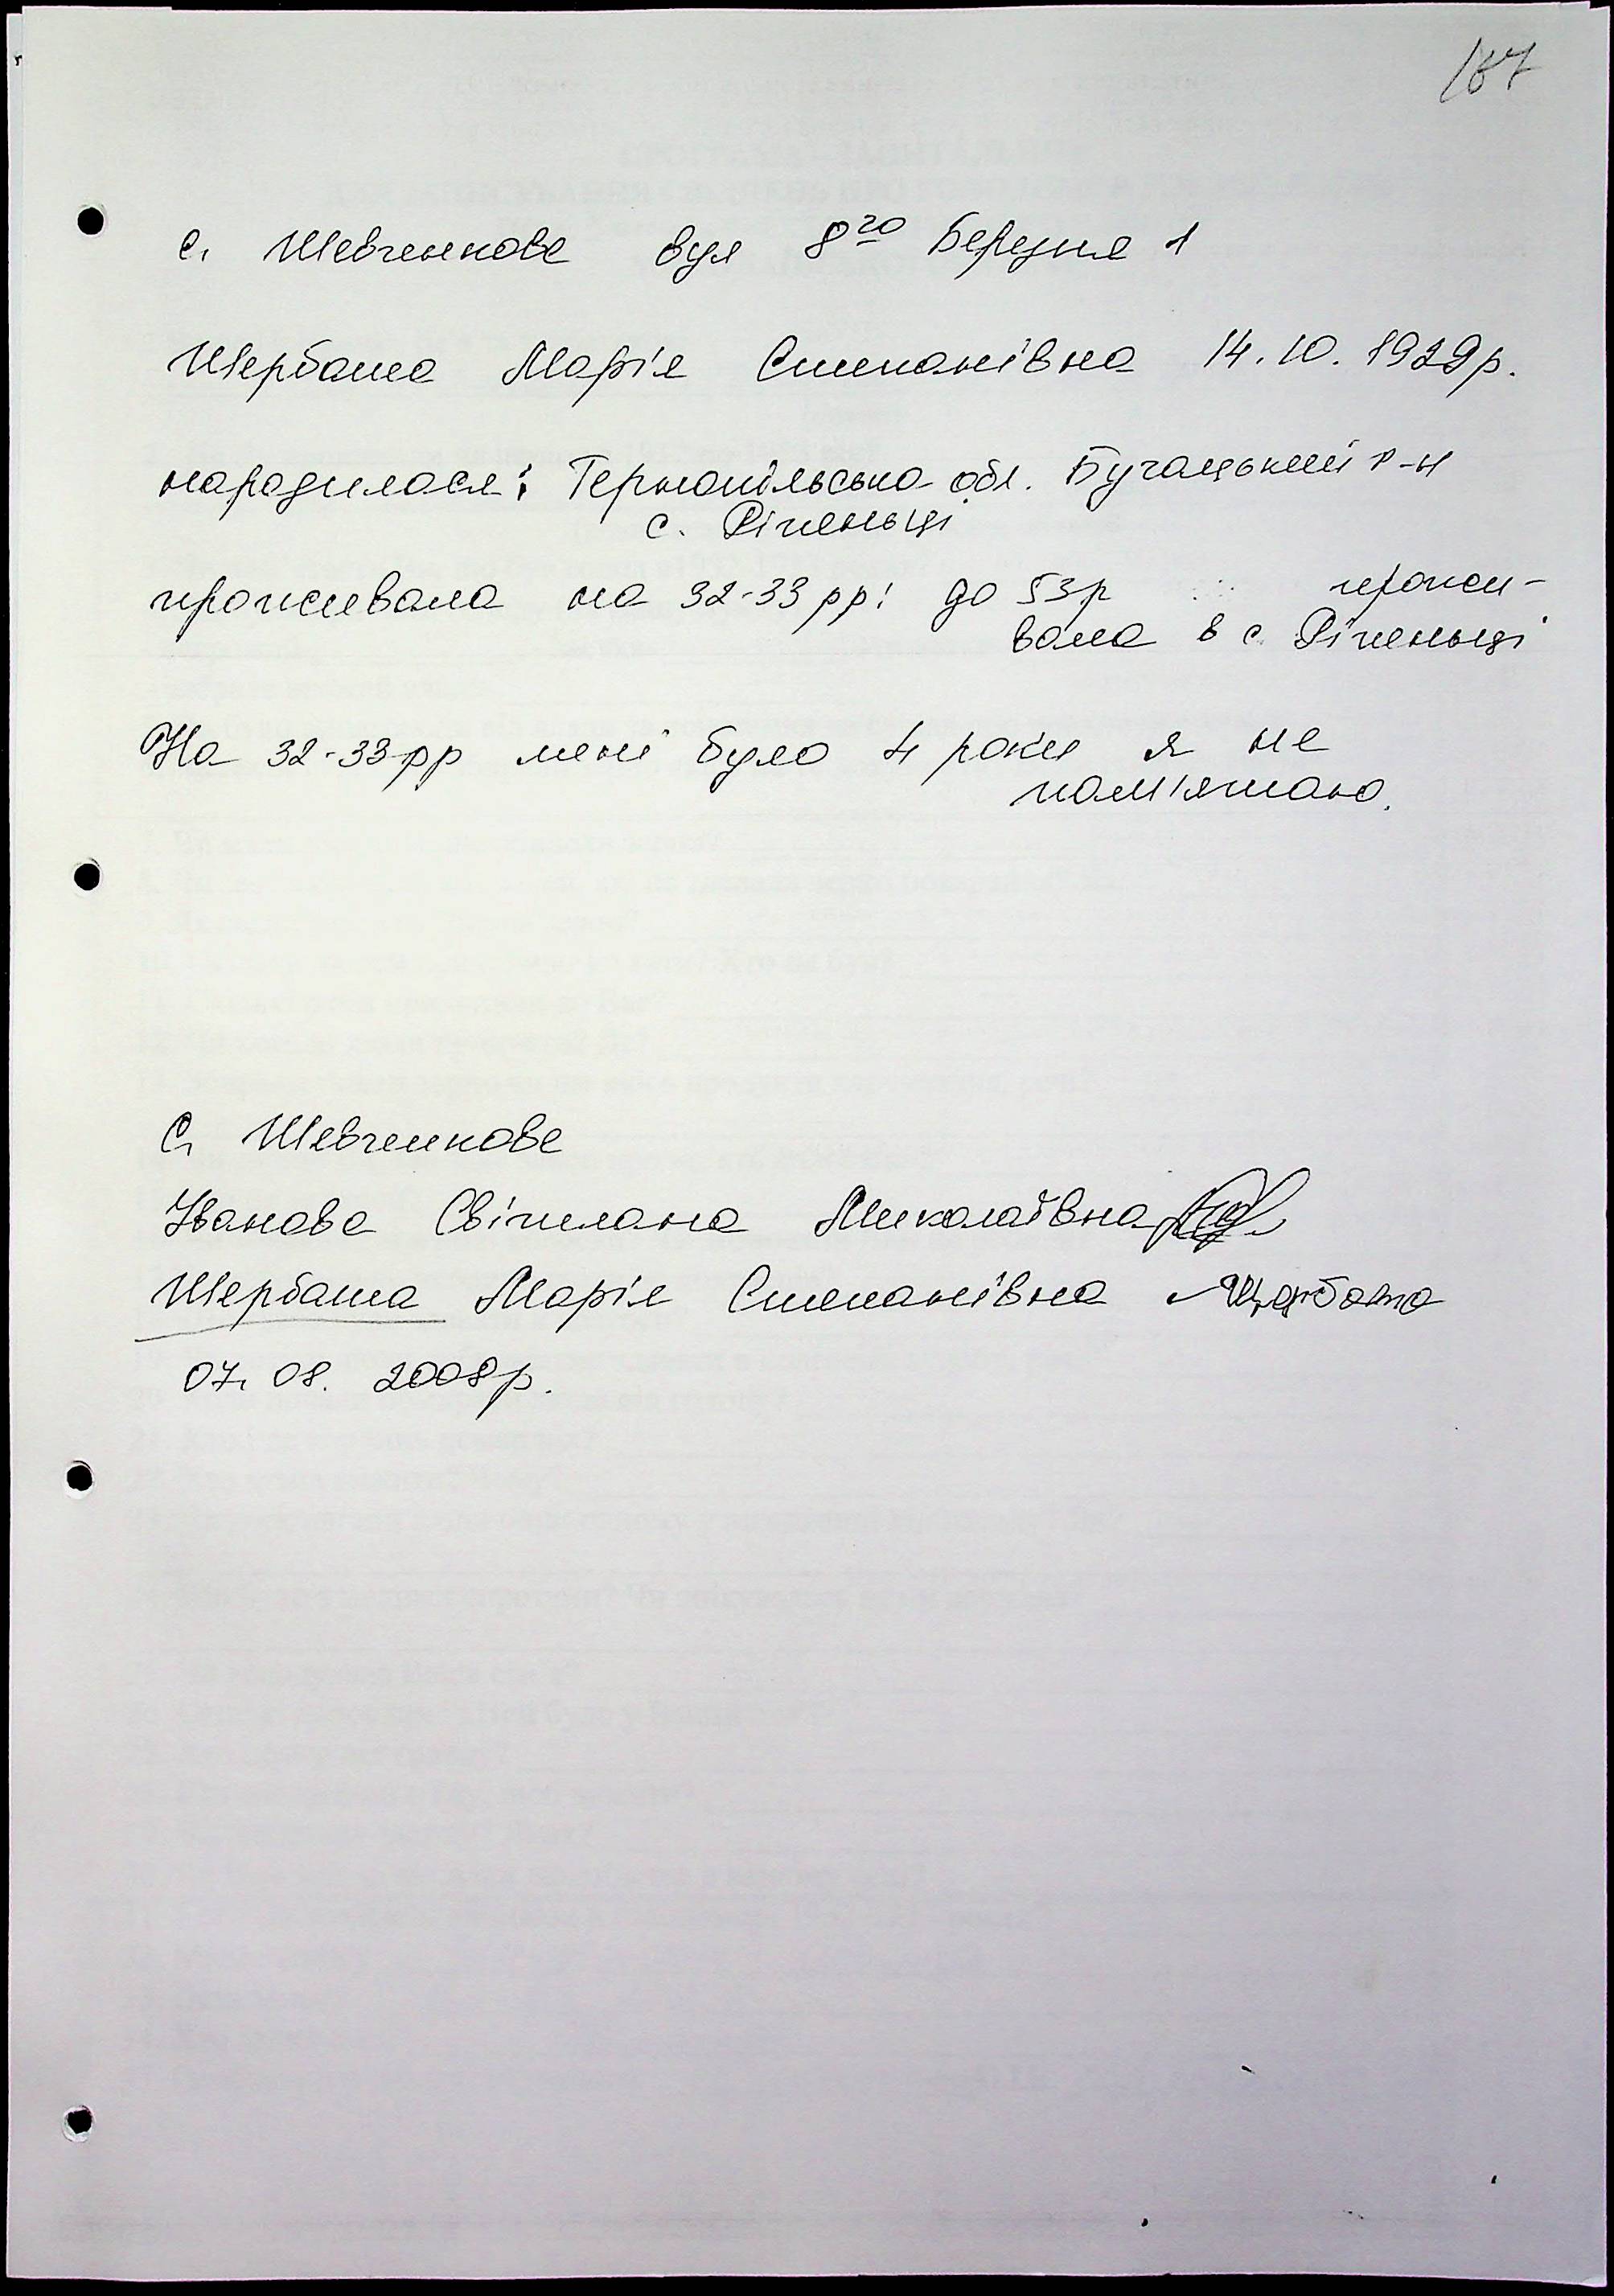 187
с. Шевченкове вул 8го Березня 1
Щербата Марія Степанівна 14.10.1929р.
народилася: Тернопільська обл. Бучацький р-н
с. Ріпенці
проживала на 32-33 рр: до 53р прожи-
вала в с Ріпенці
На 32-33 рр мені було 4 роки я не
пам'ятаю.
С. Шевченкове
Іванова Світлана Миколаївна
Щербата Марія Степанівна Щербата
07.08.2008р.